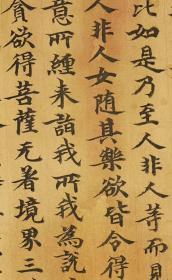 比如是乃至人非人等而見
人非人女随其樂欲皆令得
意所纏来詣我所我為説
貪欲得菩薩无著境界三